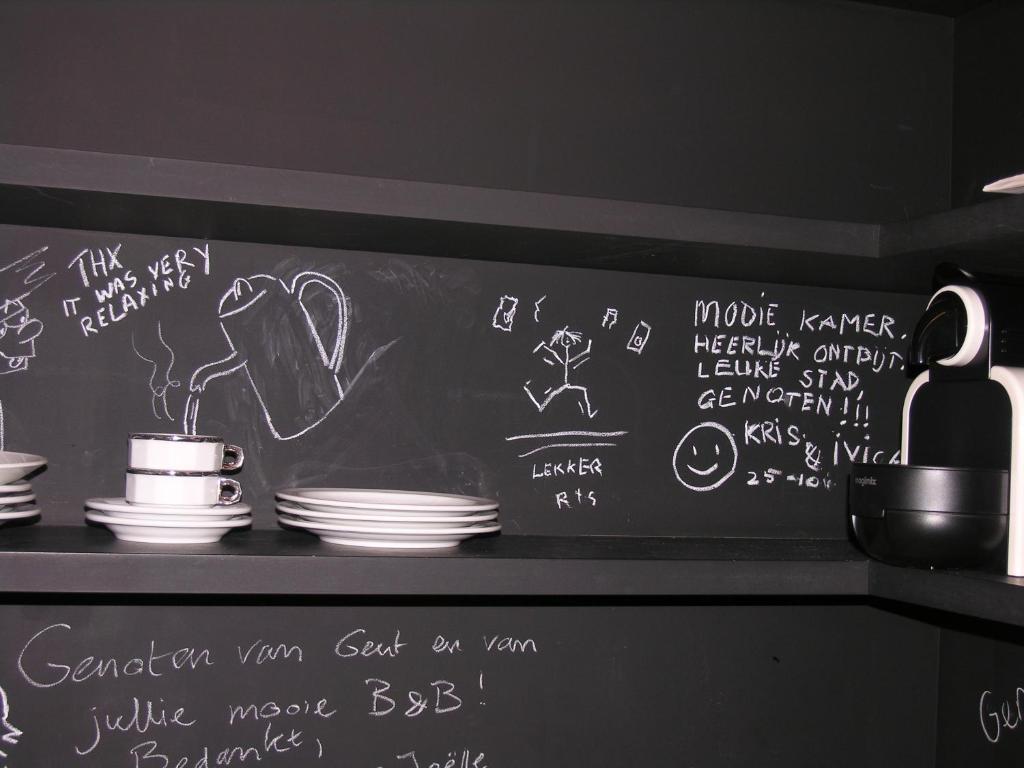 THX
IT WAS VERY
RELAXING
LEKKER
R+S
MOOIE KAMER,
HEERLIJK ONTBIJT,
LEUKE STAD,
GENOTEN!!!
KRIS & 
25-10
magimix
Genoten van Gent en van
jullie mooie B&B!
Bedankt,
Joëlle